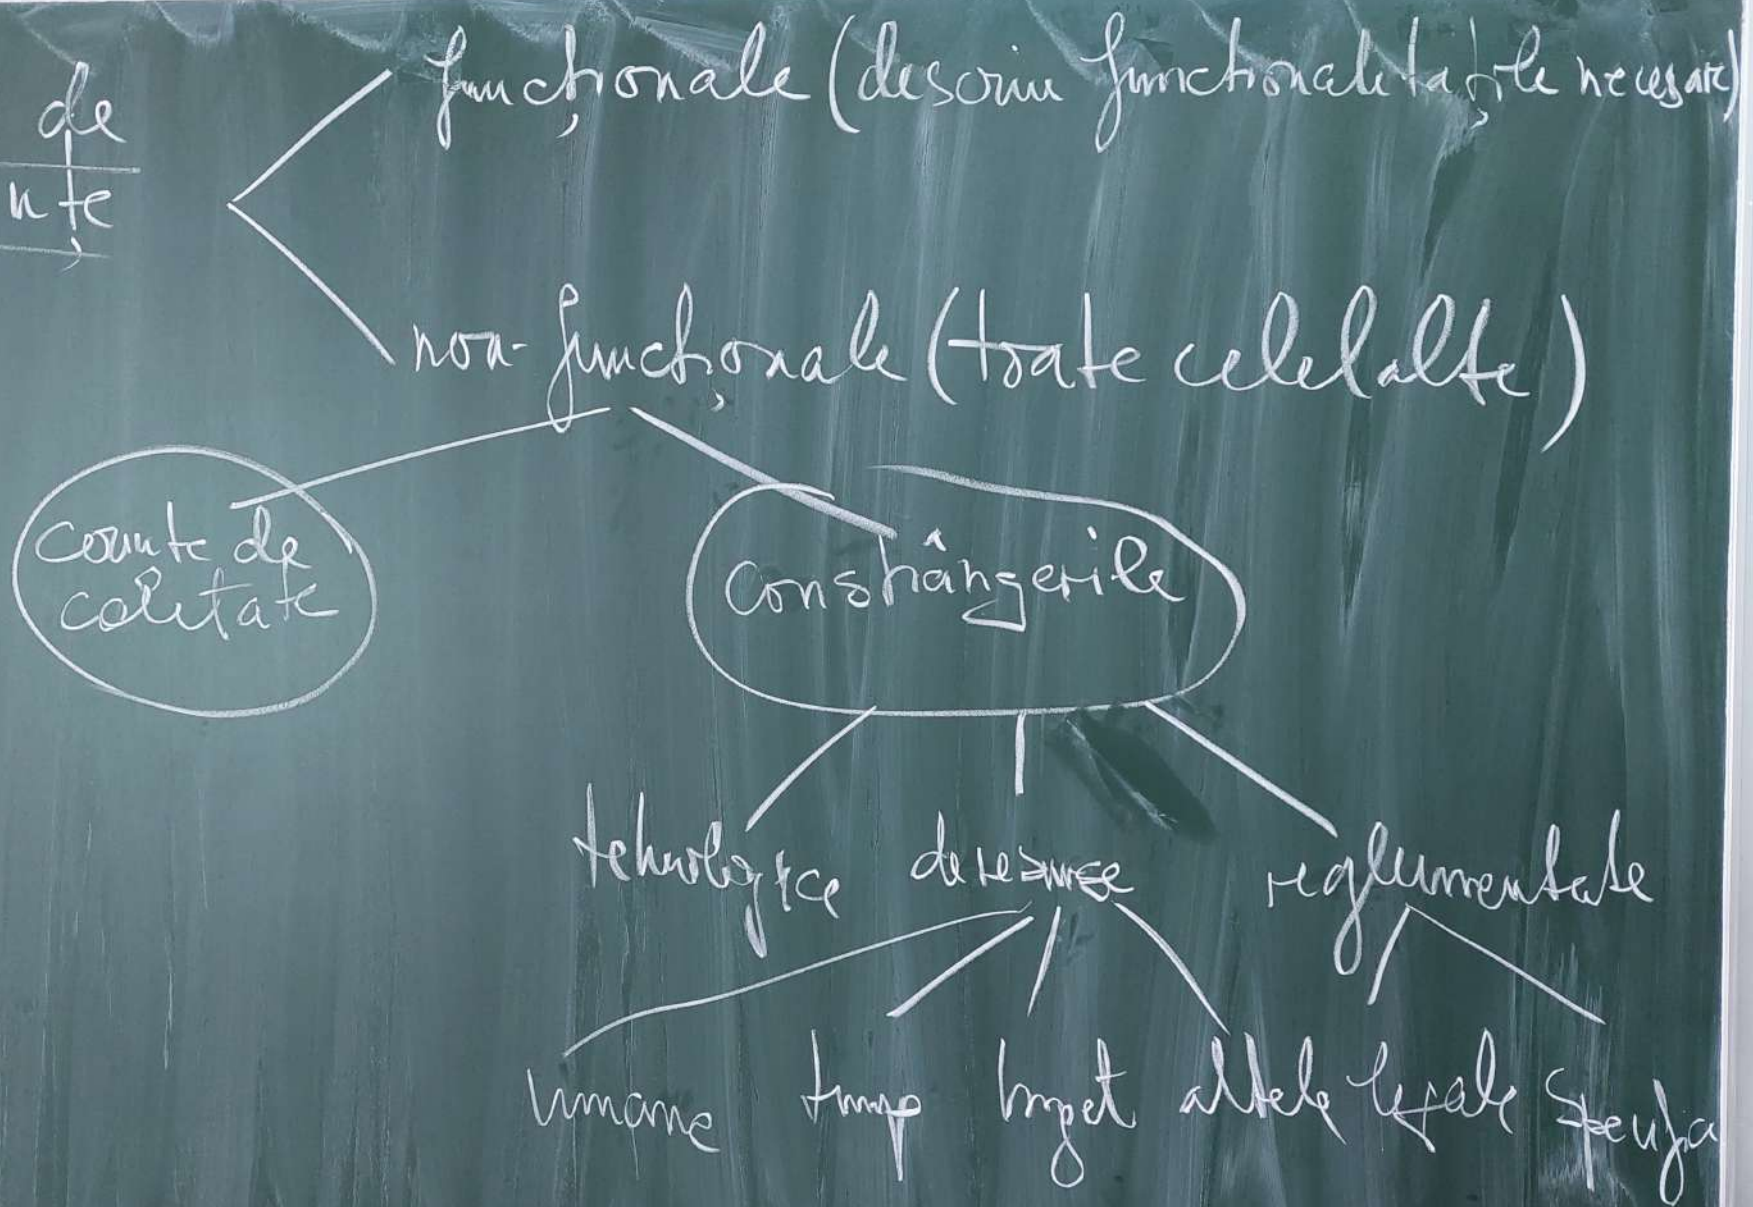 de
nțe
funcționale (descriu funcționalitățile necesare)
non-funcționale (toate celelalte)
cerințe de
calitate
Constrângerile
tehnologice de resurse reglementate
umane timp buget altele legale specifica